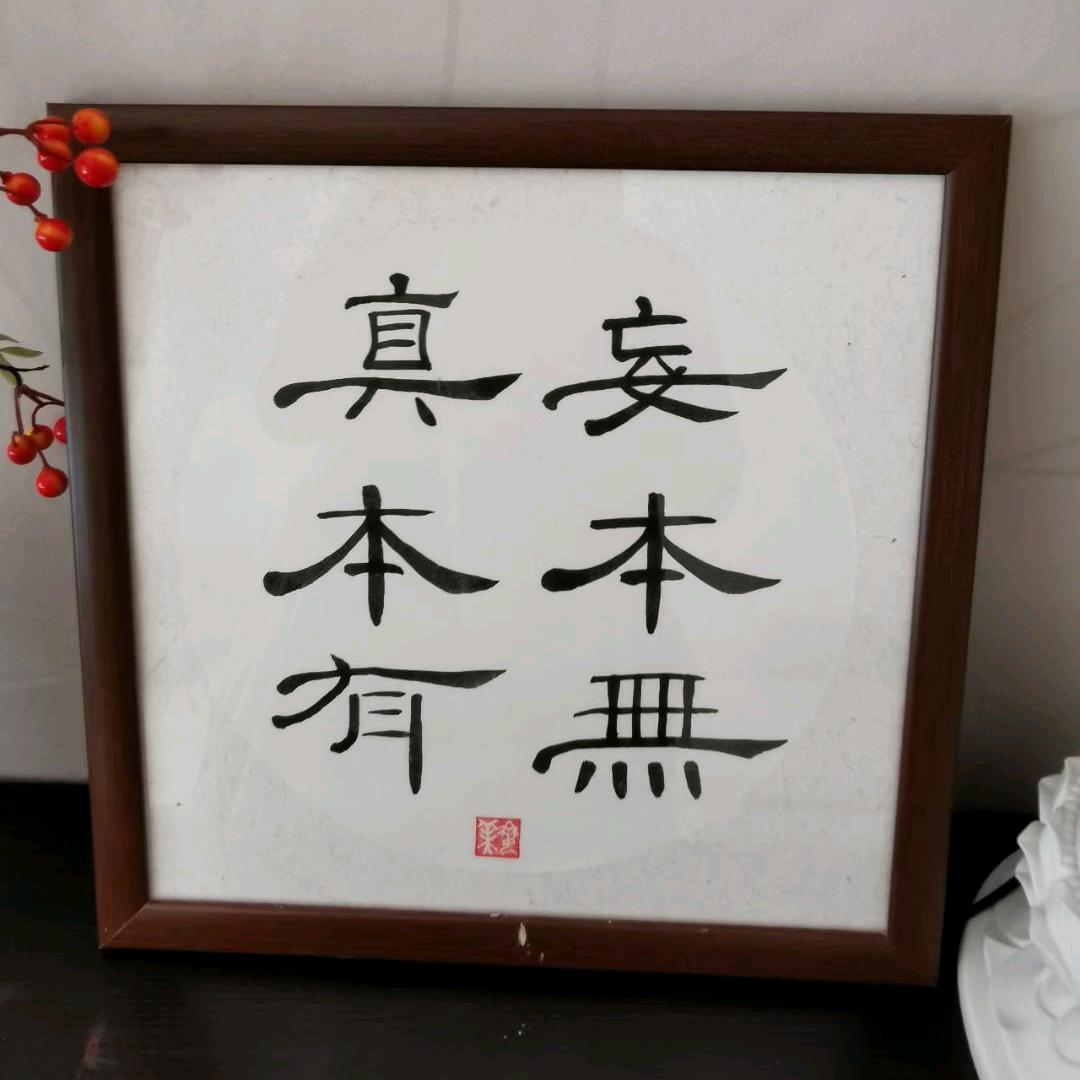 妄本無
真本有